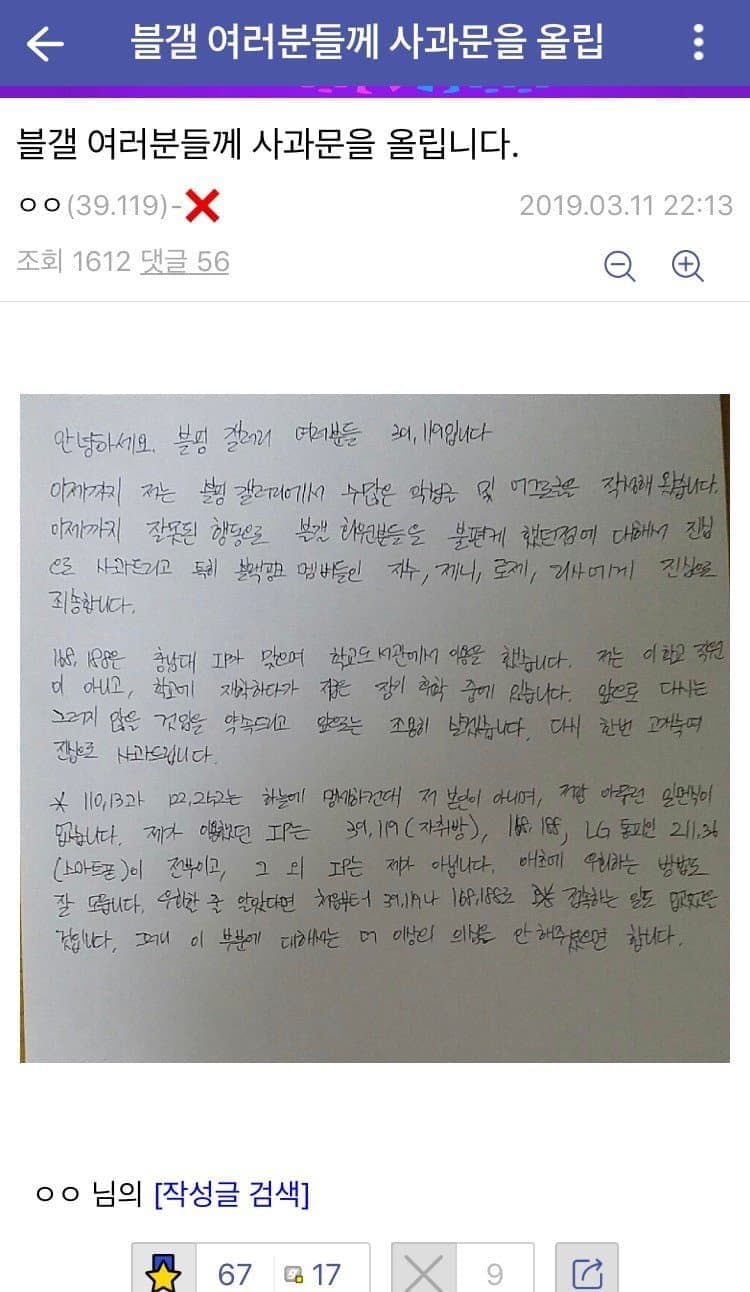 블갤 여러분들께 사과문을 올립
블갤 여러분들께 사과문을 올립니다.
ㅇㅇ(39.119)-❌ 2019.03.11 22:13
조회 1612 댓글 56
안녕하세요. 블핑 갤러리 여러분들 39,119입니다
이제까지 저는 블핑 갤러리에서 수많은 악성글 및 어그로글은 작성해 왔습니다.
이제까지 잘못된 행동으로 블갤 회원분들을 불편케 했던점에 대해서 진심
으로 사과드리고 특히 블랙핑크 멤버들인 지수, 제니, 로제, 리사에게 진심으로
죄송합니다.
168, 188은 충남대 IP가 맞으며 학교도서관에서 이용을 했습니다. 저는 이 학교 직원
이 아니고, 학교에 재학하다가 지금은 장기 휴학 중에 있습니다. 앞으로 다시는
그러지 않을 것임을 약속드리고 앞으로는 조용히 살겠습니다. 다시 한번 고개숙여
진심으로 사과드립니다.
* 110,13과 122,252는 하늘에 맹세하건대 저 본인이 아니며, 저랑 아무런 일면식이
없습니다. 제가 이용했던 IP는 39,119(자취방), 168,188, LG 통피인 211.36
(스마트폰)이 전부이고, 그 외 IP는 제가 아닙니다. 애초에 우회하는 방법도
잘 모릅니다. 우회할 줄 알았다면 처음부터 39,119나 168,188로 접속하는 일도 없었을
것입니다. 그러니 이 부분에 대해서는 더 이상의 의심을 안 해주셨으면 합니다.
ㅇㅇ 님의 [작성글 검색]
67 17 9